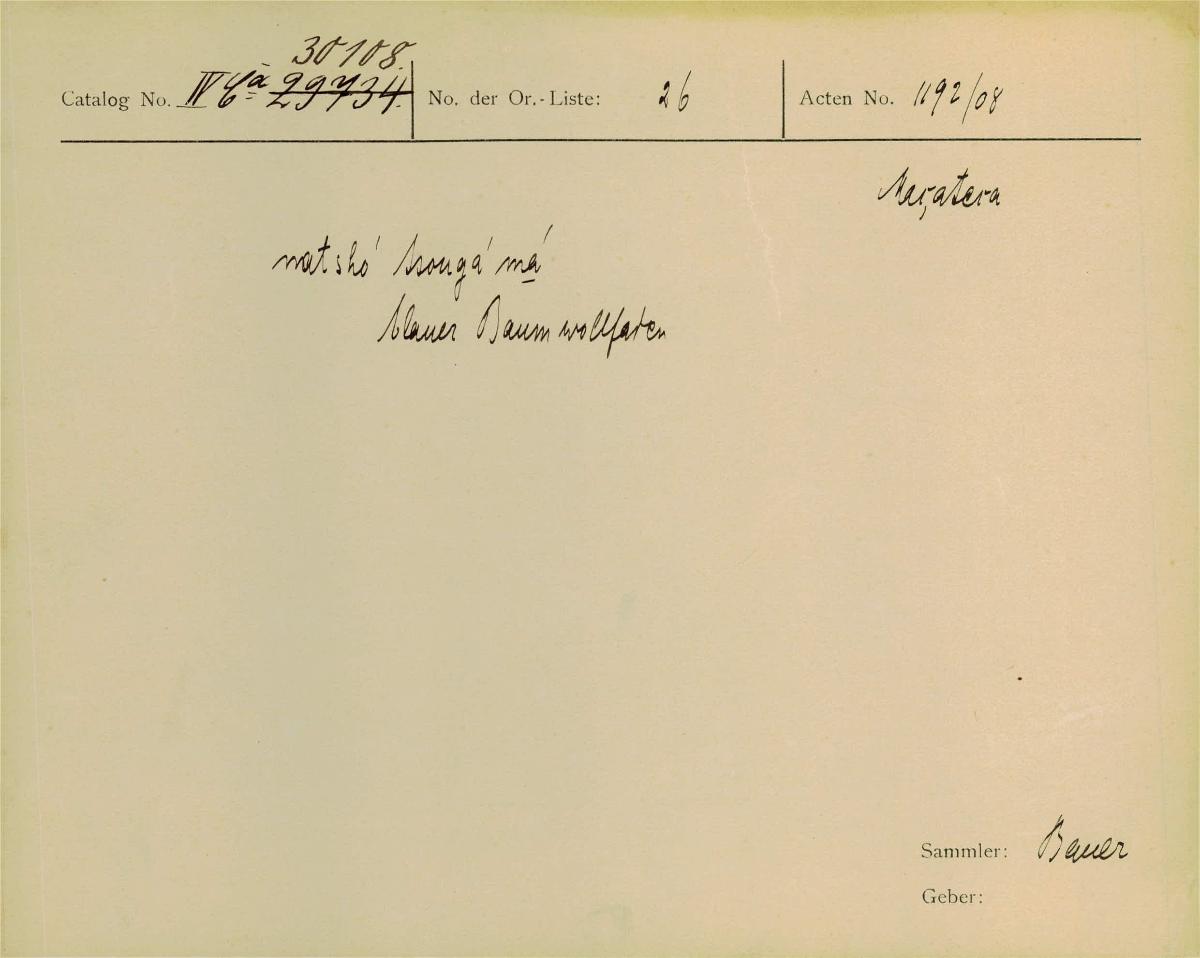 30108.
Catalog No. IV Ca 29734. No. der Or.-Liste: 26 Acten No. 1192/08
Maçateca
natshó tsougá má
blauer Baumwollfaden
Sammler: Bauer
Geber: